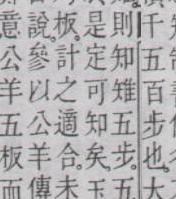 千五百步也。大
則知雉五步。五
是定可知矣。
板。計之適合。未
說。參以公羊傳
意公羊五板而